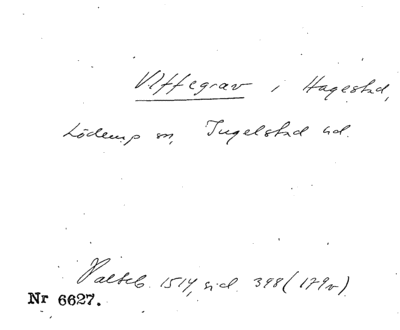 Ulffegrav i Hagestad,
Löderup sn, Ingelstad hd.
Paltsb. 1514, sid. 398 (179v).
Nr 6627.